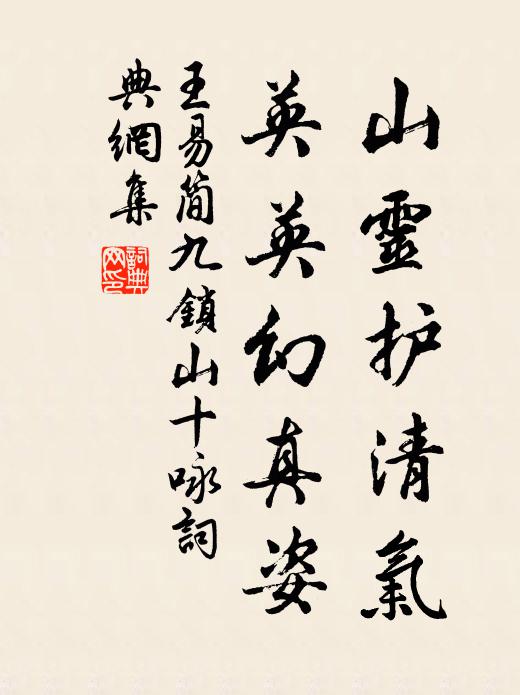 山靈护清氣
英英幻真姿
王易简九鎖山十咏詞
典網集
詞典网印